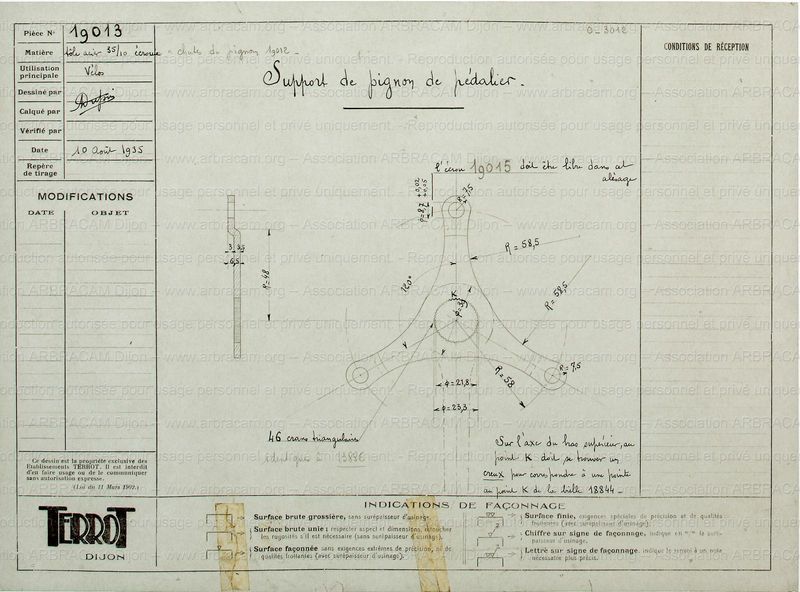 Pièce N° 19013
Matière tôle acier 35/10 écrouie - chutes du pignon 19012 -
Utilisation principale Vélos
Dessiné par
Calqué par
Vérifié par
Date 10 Août 1935
Repère de tirage
MODIFICATIONS
DATE OBJET
0-3012
CONDITIONS DE RÉCEPTION
Support de pignon de pédalier.
l'écrou 19015 doit être libre dans cet
alésage
φ=8,7 +0,02 +0,05
R=7,5
R=58,5
R=58,5
120°
K
3 3,5
6,5
R=48
R=7,5
R=58
φ=21,8
φ=23,3
46 crans triangulaires
identique à 18896
Sur l'axe du bras supérieur, au
point K doit se trouver un
creux pour correspondre à une pointe
au point K de la bielle 18844 -
Ce dessin est la propriété exclusive des
Etablissements TERROT. Il est interdit
d'en faire usage ou de le communiquer
sans autorisation expresse.
(Loi du 11 Mars 1902.)
TERROT
DIJON
INDICATIONS DE FAÇONNAGE
Surface brute grossière, sans surépaisseur d'usinage.
Surface brute unie; respecter aspect et dimensions, retoucher
les rugosités s'il est nécessaire (sans surépaisseur d'usinage).
Surface façonnée sans exigences extrêmes de précision, ni de
qualités frottantes (avec surépaisseur d'usinage).
Surface finie, exigences spéciales de précision et de qualités
frottantes (avec surépaisseur d'usinage).
Chiffre sur signe de façonnage, indique en m/m la surépaisseur d'usinage.
Lettre sur signe de façonnage, indique le renvoi à une note
nécessaire plus précis.
www.arbracam.org – Association ARBRACAM Dijon – Reproduction autorisée pour usage personnel et privé uniquement.